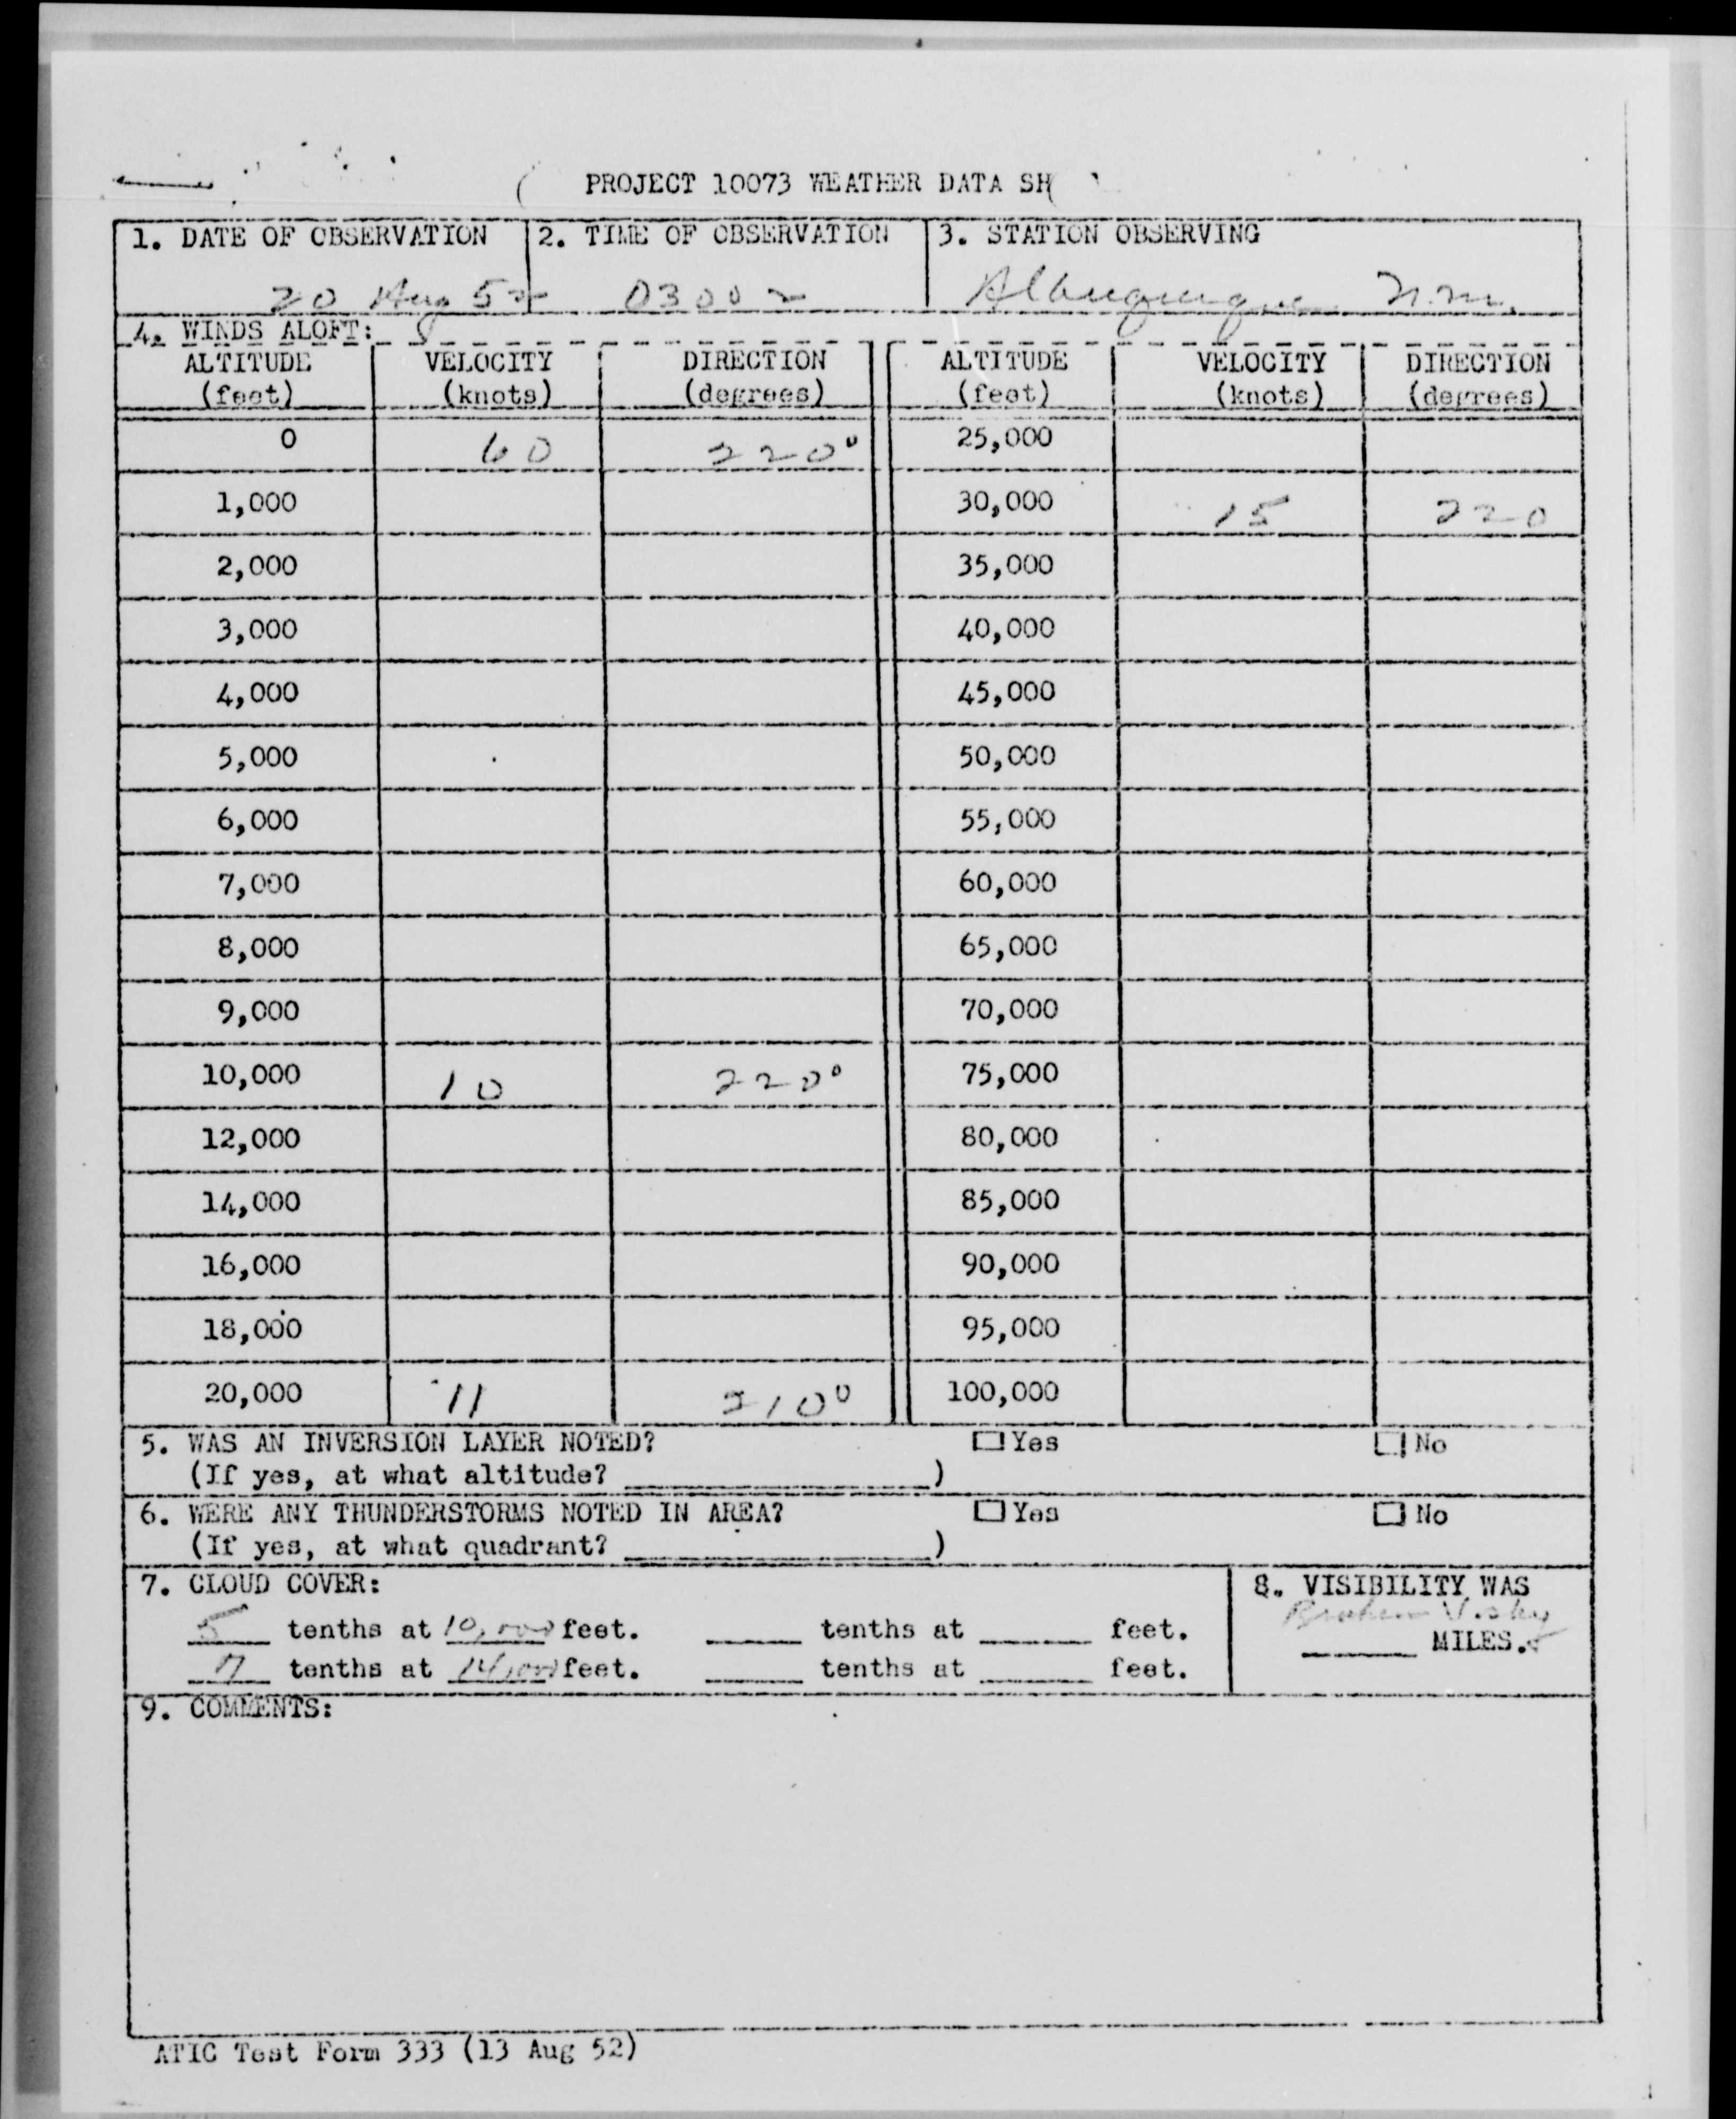 PROJECT 10073 WEATHER DATA SH
1. DATE OF OBSERVATION 2. TIME OF OBSERVATION 3. STATION OBSERVING
20 Aug 52 0300 z Albuquerque N.M.
4. WINDS ALOFT:
ALTITUDE VELOCITY DIRECTION ALTITUDE VELOCITY DIRECTION
(feet) (knots) (degrees) (feet) (knots) (degrees)
0 60 220° 25,000
1,000 30,000 15 220
2,000 35,000
3,000 40,000
4,000 45,000
5,000 50,000
6,000 55,000
7,000 60,000
8,000 65,000
9,000 70,000
10,000 10 220° 75,000
12,000 80,000
14,000 85,000
16,000 90,000
18,000 95,000
20,000 11 210° 100,000
5. WAS AN INVERSION LAYER NOTED? Yes No
(If yes, at what altitude? )
6. WERE ANY THUNDERSTORMS NOTED IN AREA? Yes No
(If yes, at what quadrant? )
7. CLOUD COVER: 8. VISIBILITY WAS
Broken
5 tenths at 10,000 feet. tenths at feet.
MILES.
7 tenths at 14,000 feet. tenths at feet.
9. COMMENTS:
ATIC Test Form 333 (13 Aug 52)